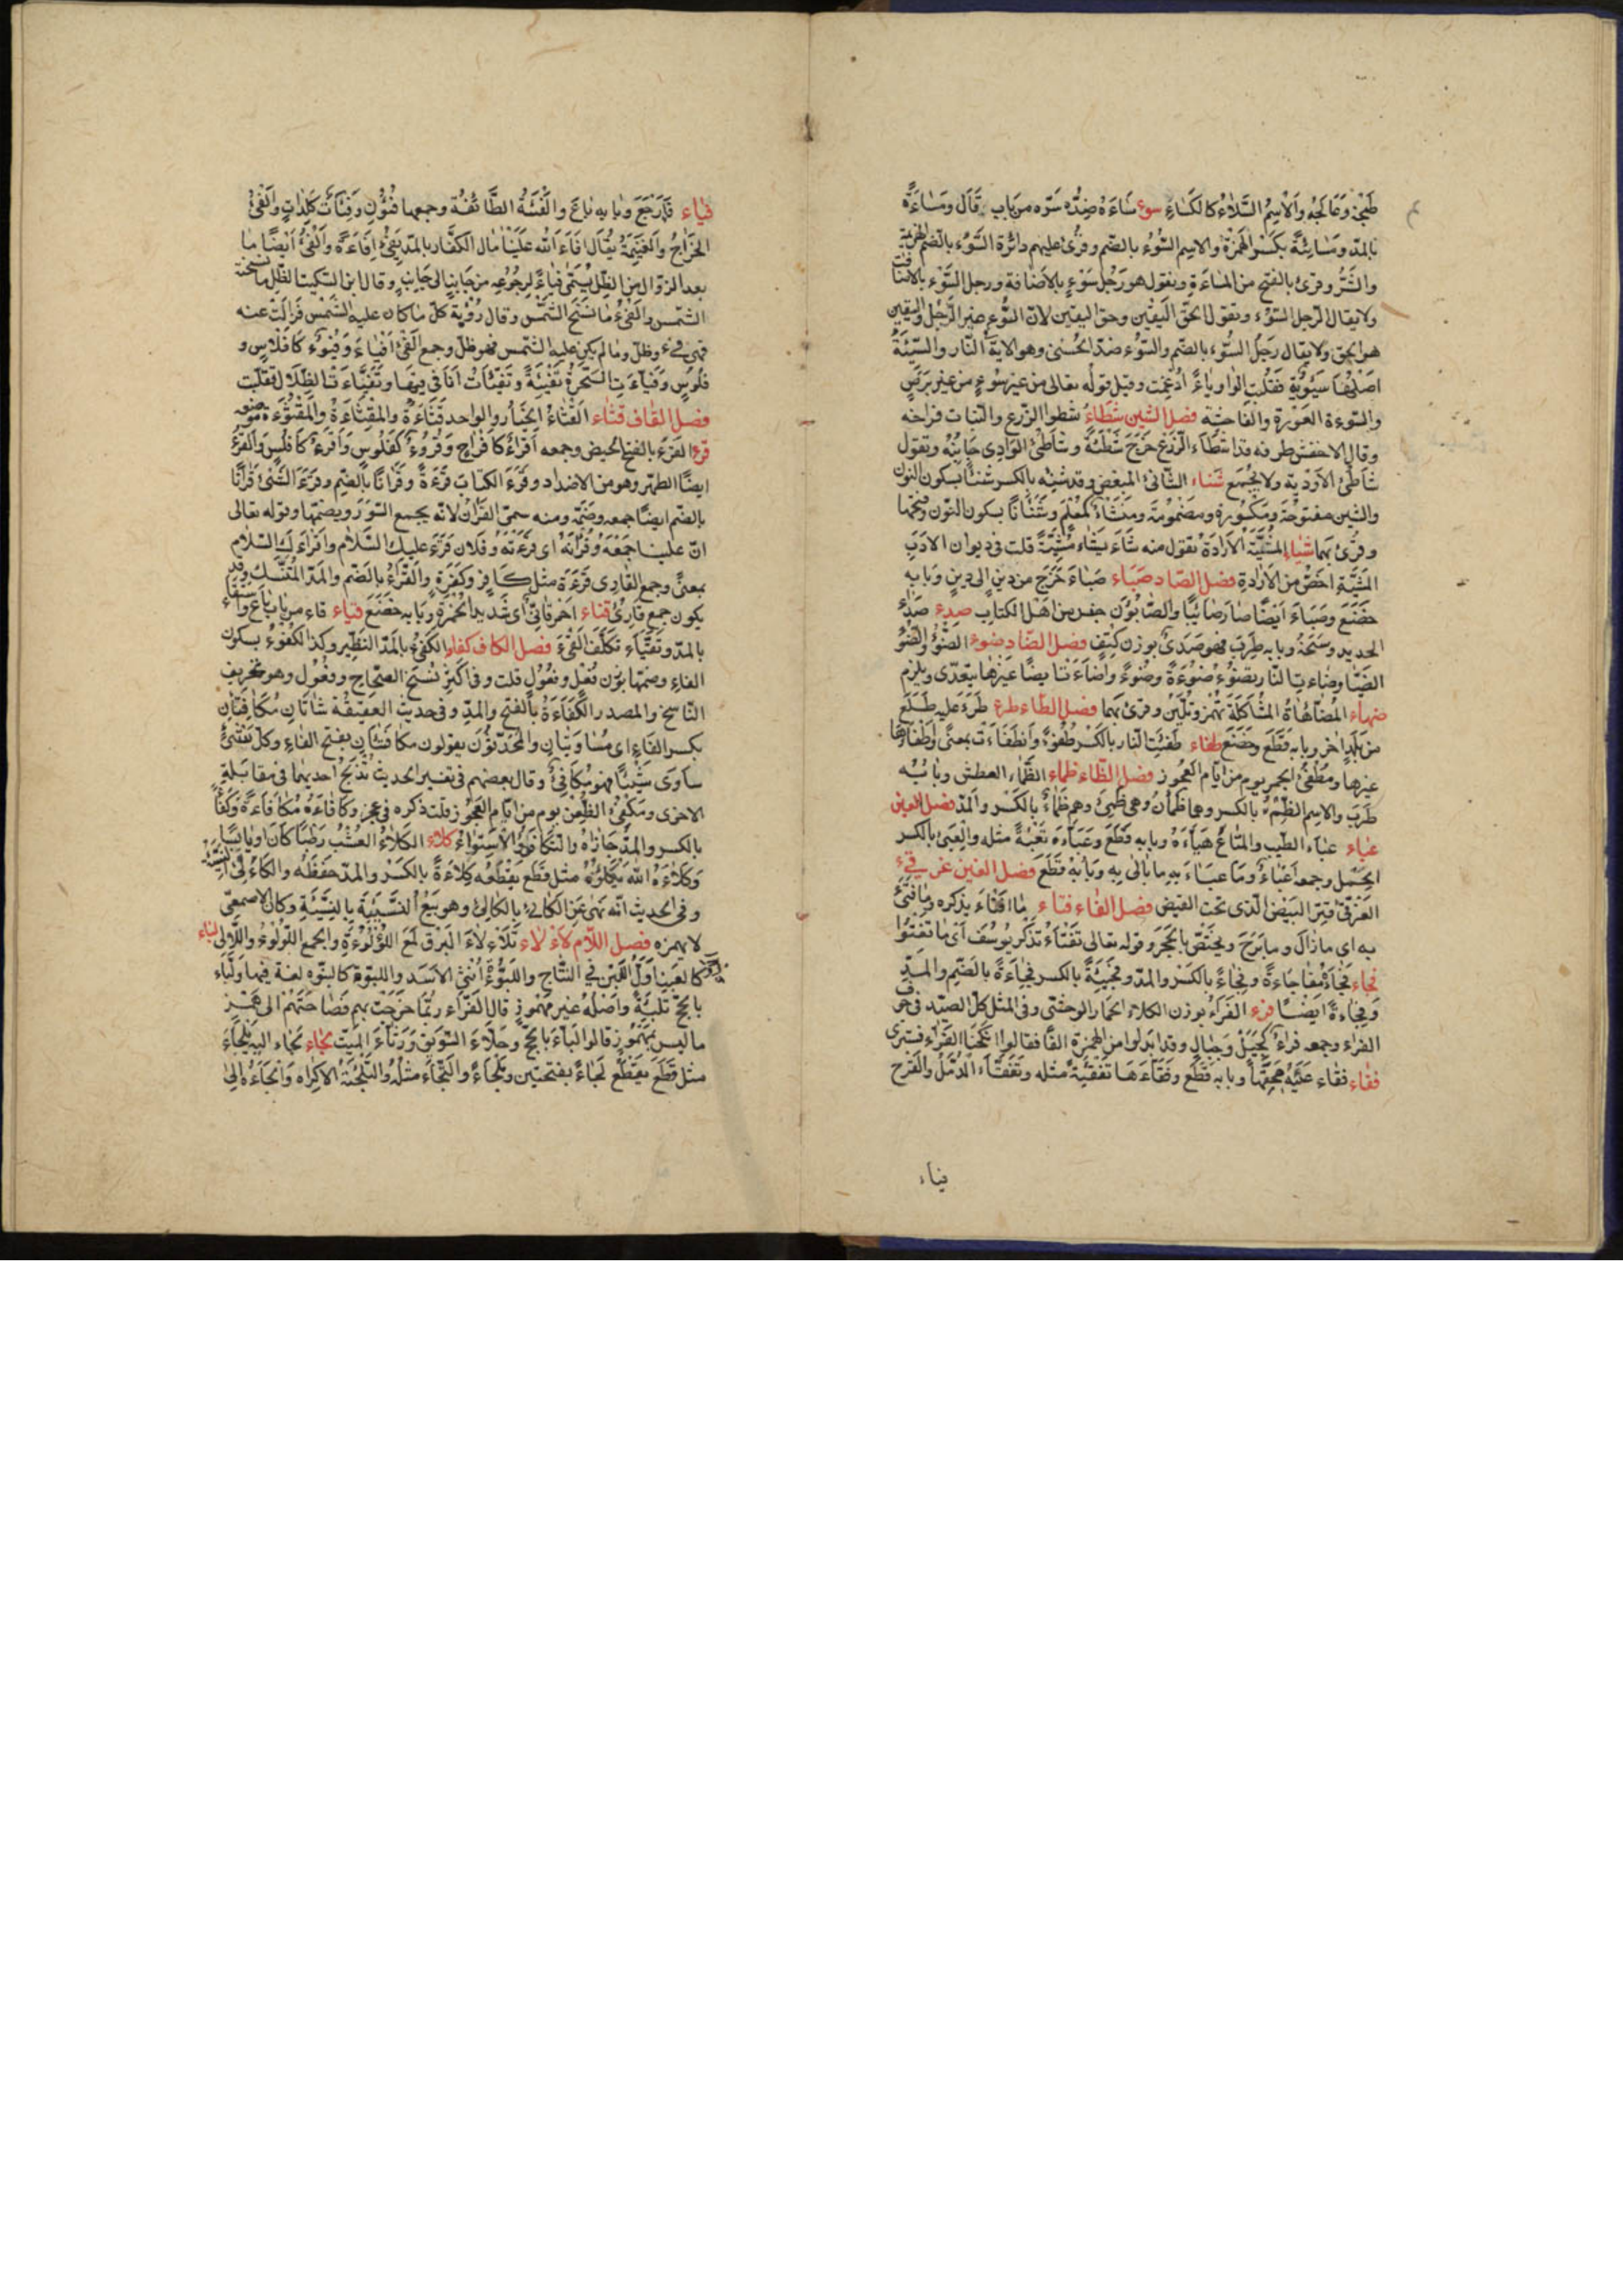 طبخ وعالجه والاسم السلاء كالكساء سوء ساءه ضد سره من باب قال ومساءة
بالمد ومسائية بكسر الهمزة والاسم السوء بالضم وقرئ عليهم دائرة السوء بالضم الهزيمة
والشر وقرئ بالفتح من المساءة وتقول هو رجل سوء بالاضافة ورجل السوء بالاضافة
ولا يقال الرجل السوء وتقول الحق اليقين وحق اليقين لان السوء غير الرجل واليقين
هو الحق ولا يقال رجل السوء بالضم والسوء ضد الحسنى وهو الاية النار والسيئة
اصلها سيوئة فقلبت الواو ياء ادغمت وقيل قوله تعالى من غير سوء من غير برص
والسوءة العورة والفاحشة فصل الشين شطاء شطو الزرع والنبات فراخه
وقال الاخفش طرفه وقد اشطاء الزرع خرج شطئه وشاطئ الوادى جانبه وتقول
شاطئ الاودية ولا يجمع شناء الشانئ المبغض وقد شنئه بالكسر شنئا بسكون النون
والشين مفتوحة ومكسورة ومضمومة ومشنأ كمعلم وشنئانا بسكون النون وفتحها
وقرئ بهما شياء المشيئة الارادة تقول منه شاء يشاء مشيئة قلت فى ديوان الادب
المشية اخص من الارادة فصل الصاد صباء صباء خرج من دين الى دين وبابه
خضع وصباء ايضا صار صابئيا والصابؤن جنس من اهل الكتاب صدء صدء
الحديد وسخه وبابه طرب فهو صدئ بوزن كتف فصل الضاد ضوء الضوء والضوء
الضياء وضاءت النار تضوء ضوءة وضوءا واضاءت ايضا غيرها يتعدى ويلزم
ضهاء المضاهاة المشاكلة تهمز وتلين وقرئ بهما فصل الطاء طرء طرء عليه طلع
من بلد اخر وبابه قطع وخضع طفاء طفئت النار بالكسر طفوءا وانطفاءت بمعنى واطفاؤها
غيرها ومطفئ الجمر يوم من ايام العجوز فصل الظاء ظماء الظماء العطش وبابه
طرب والاسم الظمء بالكسر وهما ظمأن وهى ظمئ وهم ظماء بالكسر والمد فصل العين
عباء عباء الطيب والمتاع هياءه وبابه قطع وعباءه تعبئة مثله والعبئ بالكسر
الحمل وجمعه اعباء وما عباء به ما بالى به وبابه قطع فصل الغين غرقئ
الغرقئ قشر البيض الذى تحت القيض فصل الفاء فتاء ما افتاء يذكره وما فتئ
به اى ما زال وما برح ويختص بالجحد وقوله تعالى تفتاء تذكر يوسف اى ما تفتؤا
فجاء فجاءه مفاجاءة وفجاء بالكسر والمد وفجئه بالكسر فجاءة بالضم والمد
وفجاءه ايضا فرء الفراء بوزن الكلاء الحمار الوحشى وفى المثل كل الصيد فى جوف
الفراء وجمعه فراء كجبل وجبال وقد ابدلوا من الهمزة الفا فقالوا انكحنا الفراء فسترى
فقاء فقاء عينه بخقها وبابه قطع وفقاءها تفقئة مثله وتفقاء الدمل والقرح
فياء
فياء فاء رجع وبابه باع والفئة الطائفة وجمعها فئون وفئات كلدات والفئ
الخراج والغنيمة يقال افاء الله علينا مال الكفار بالمد يفئ افاءة والفئ ايضا ما
بعد الزوال من الظل يسمى فياء لرجوعه من جانب الى جانب وقال ابن السكيت الظل ما نسخته
الشمس والفئ ما نسخ الشمس وقال رؤبة كل ما كان عليه الشمس فزالت عنه
فهو فئ وظل وما لم يكن عليه الشمس فهو ظل وجمع الفئ افياء وفيوء كافلس و
فلوس وفياءت الشجرة تفيئة وتفيئات انا فى فيئها وتفياءت الظلال تقلبت
فصل القاف قثاء القثاء الخيار والواحد قثاءة والمقثاءة والمقثوءة موضعه
قرء القرء بالفتح الحيض وجمعه اقراء كافراخ وقروء كفلوس واقرء كافلس والقرء
ايضا الطهر وهو من الاضداد وقرء الكتاب قرءة وقرانا بالضم وقرء الشئ قرانا
بالضم ايضا جمعه وضمه ومنه سمى القران لانه يجمع السور ويضمها وقوله تعالى
ان علينا جمعه وقرانه اى قرءته وفلان قرء عليك السلام واقراء لك السلام
بمعنى وجمع القارى قرءة مثل كافر وكفرة والقراء بالضم والمد المتنسك وقد
يكون جمع قارئ قناء احمر قانئ اى شديد الحمرة وبابه خضع قياء قاء من باب باع واستقاء
بالمد وتقياء تكلف القئ فصل الكاف كفاء الكفئ بالمد النظير وكذا الكفوء بسكون
الفاء وضمها بوزن فعل وفعول قلت وفى اكثر نسخ الصحاح وفعول وهو تحريف
الناسخ والمصدر الكفاءة بالفتح والمد وفى حديث العقيقة شاتان مكافئتان
بكسر الفاء اى مساويتان والمحدثون يقولون مكافئتان بفتح الفاء وكل شئ
ساوى شيئا فهو مكافئ وقال بعضهم فى تفسير الحديث تذبح احديهما فى مقابلة
الاخرى ومكفئ الظعن يوم من ايام العجوز قلت ذكره فى عجز وكافاءه مكافاءة وكفاء
بالكسر والمد جازاه والتكافؤ الاستواء كلاء الكلاء العشب رطبا كان او يابسا
وكلاءه الله يكلؤه مثل قطع يقطعه كلاءة بالكسر والمد حفظه والكالئ النسيئة
وفى الحديث انه نهى عن الكالئ بالكالئ وهو بيع النسيئة بالنسيئة وكان الاصمعى
لا يهمزه فصل اللام لاء لاء تلاءلاء البرق لمع اللؤلؤءة والجمع اللؤلوء واللالى لباء
كالعنب اول اللبن فى النتاج واللبؤة انثى الاسد واللبوة كالبتوه لغة فيها ولباء
بالحج تلبئة واصله غير مهموز قال الفراء ربما خرجت بهم فصاحتهم الى همز
ما ليس بمهموز قالوا لباء بالحج وحلاء السويق ورثاء الميت لجاء لجاء اليه يلجاء
مثل قطع يقطع لجاء بفتحتين وملجاء والتجاء مثله والتلجئة الاكراه والجاءه الى